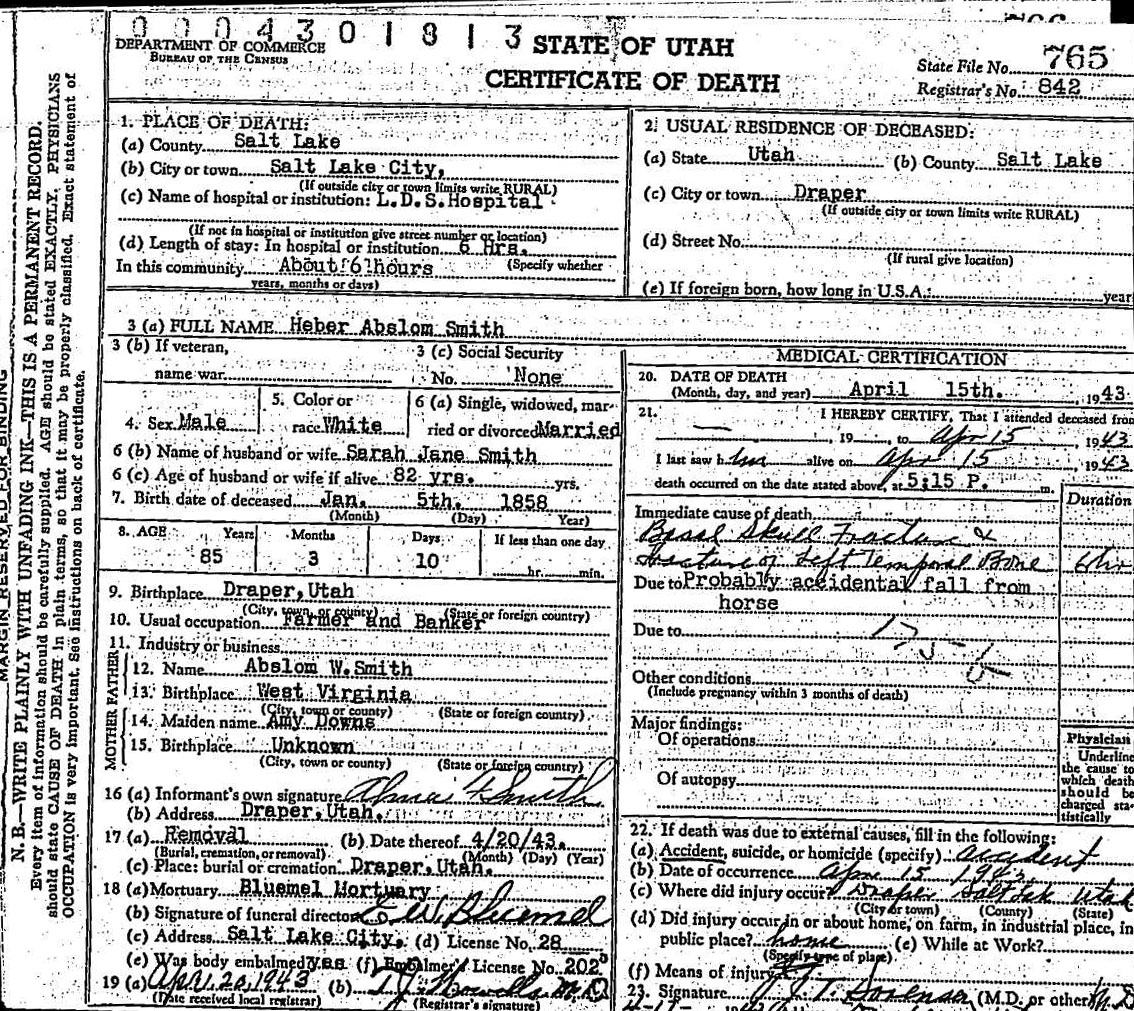 0 0 0 4 3 0 1 8 1 3
DEPARTMENT OF COMMERCE
BUREAU OF THE CENSUS
STATE OF UTAH
CERTIFICATE OF DEATH
State File No. 765
Registrar's No. 842
MARGIN RESERVED FOR BINDING
N. B.—WRITE PLAINLY WITH UNFADING INK—THIS IS A PERMANENT RECORD.
Every item of information should be carefully supplied. AGE should be stated EXACTLY. PHYSICIANS
should state CAUSE OF DEATH in plain terms, so that it may be properly classified. Exact statement of
OCCUPATION is very important. See instructions on back of certificate.
1. PLACE OF DEATH:
(a) County Salt Lake
(b) City or town Salt Lake City,
(If outside city or town limits write RURAL)
(c) Name of hospital or institution: L.D.S.Hospital
(If not in hospital or institution give street number or location)
(d) Length of stay: In hospital or institution 6 Hrs.
In this community About 6 hours (Specify whether
years, months or days)
2. USUAL RESIDENCE OF DECEASED:
(a) State Utah (b) County Salt Lake
(c) City or town Draper
(If outside city or town limits write RURAL)
(d) Street No.
(If rural give location)
(e) If foreign born, how long in U.S.A.: year
3 (a) FULL NAME Heber Abslom Smith
3 (b) If veteran,
name war
3 (c) Social Security
No. None
4. Sex Male
5. Color or
race White
6 (a) Single, widowed, mar-
ried or divorced Married
6 (b) Name of husband or wife Sarah Jane Smith
6 (c) Age of husband or wife if alive 82 yrs. yrs.
7. Birth date of deceased Jan. 5th. 1858
(Month) (Day) Year)
8. AGE Years Months Days If less than one day
85 3 10 hr. min.
9. Birthplace Draper,Utah
(City, town, or county) (State or foreign country)
10. Usual occupation Farmer and Banker
11. Industry or business
FATHER
12. Name Abslom W.Smith
13. Birthplace West Virginia
(City, town or county) (State or foreign country)
MOTHER
14. Maiden name Amy Downs
15. Birthplace Unknown
(City, town or county) (State or foreign country)
16 (a) Informant's own signature Alma Smith
(b) Address Draper,Utah.
17 (a) Removal (b) Date thereof 4/20/43.
(Burial, cremation, or removal) (Month) (Day) (Year)
(c) Place: burial or cremation Draper,Utah.
18 (a) Mortuary Bluemel Mortuary
(b) Signature of funeral director E. W. Bluemel
(c) Address Salt Lake City, (d) License No. 28
(e) Was body embalmed yes (f) Embalmer's License No. 202
19 (a) Apr. 20, 1943 (b) M.D.
(Date received local registrar) (Registrar's signature)
MEDICAL CERTIFICATION
20. DATE OF DEATH
(Month, day, and year) April 15th. 1943
21. I HEREBY CERTIFY, That I attended deceased from
— , 19 , to Apr 15 , 1943
I last saw him alive on Apr 15 , 1943
death occurred on the date stated above, at 5:15 P. m.
Duration
Immediate cause of death
Basal Skull Fracture &
fracture of Left Temporal Bone 6 hr
Due to Probably accidental fall from
horse
Due to
Other conditions
(Include pregnancy within 3 months of death)
Major findings:
Of operations
Of autopsy
Physician
Underline
the cause to
which death
should be
charged sta-
tistically
22. If death was due to external causes, fill in the following:
(a) Accident, suicide, or homicide (specify) accident
(b) Date of occurrence Apr 15 1943
(c) Where did injury occur? Draper Salt Lake Utah
(City or town) (County) (State)
(d) Did injury occur in or about home, on farm, in industrial place, in
public place? home (e) While at Work?
(Specify type of place)
(f) Means of injury
23. Signature J. T. Sorensen (M.D. or other) M.D.